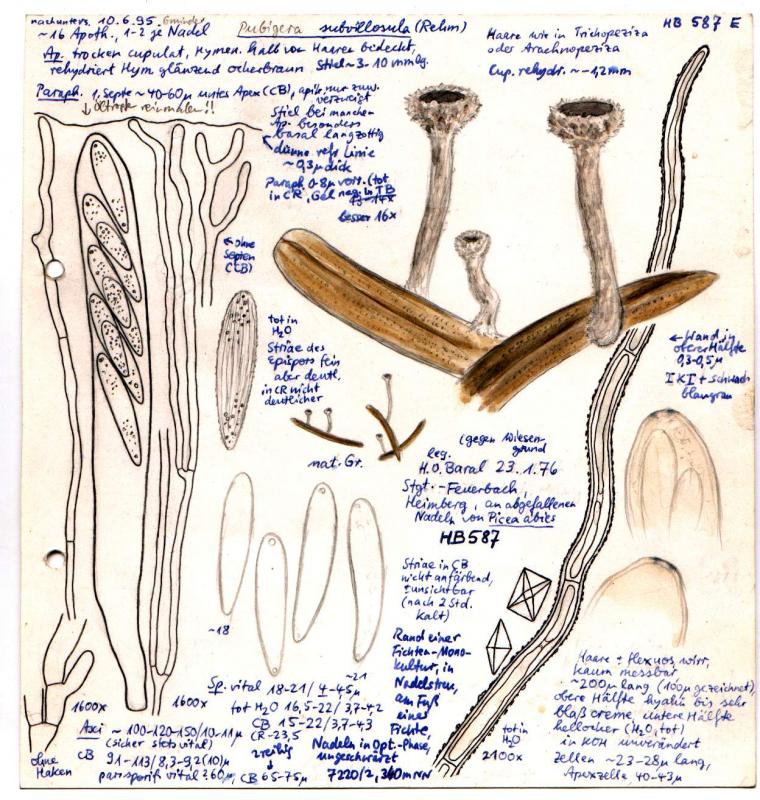 nachunters. 10.6.95.
Pubigera subvillosula (Rehm)
HB 587 E
~16 Apoth., 1-2 je Nadel
Ap. trocken cupulat, Hymen. halb von Haaren bedeckt,
rehydriert Hym glänzend ocherbraun Stiel ~3-10 mm lg.
Haare wie in Trichopeziza
oder Arachnopeziza
Cup. rehydr. ~-1,2mm
Paraph. 1. Septe ~40-60µ unters Apex (CB), apik. nur zuw.
verzweigt
↓ Öltropf reinmalen!!
Stiel bei manchen
Ap. besonders
basal langzottig
dünne refr. Linie
~0,3µ dick
Paraph 0-8µ vorr. (tot
in CR, Gel neg. in IB
besser 16x
← ohne
Septen
(CB)
tot in
H2O
Striae des
Epispors fein
aber deutl.
in CR nicht
deutlicher
← Wand in
oberer Hälfte
0,3-0,5µ
IKI + schwach
blaugrau
nat. Gr.
(gegen Wiesen-
grund
leg.
H.O. Baral 23.1.76
Stgt.-Feuerbach,
Heimberg, an abgefallenen
Nadeln von Picea abies
HB587
Striae in CB
nicht anfärbend,
± unsichtbar
(nach 2 Std.
kalt)
Rand einer
Fichten-Mono-
kultur, in
Nadelstreu,
am Fuß
einer
Fichte,
Nadeln in Opt.-Phase,
ungeschwärzt
7220/2, 360 m NN
~18
~21
Sp. vital 18-21/4-4,5µ
tot H2O 16,5-22/3,7-4,2
CB 15-22/3,7-4,3
CR -23,5
2reihig
1600x
1600x
Asci ~100-120-150/10-11µ
(sicher stets vital)
CB 91-113/8,3-9,2(10)µ
pars sporif. vital ?60µ, CB 65-75µ
ohne
Haken
tot in
H2O
2100x
Haare ± flexuos, wirr,
kaum messbar
~200µ lang (100µ gezeichnet),
obere Hälfte hyalin bis sehr
blaß creme, untere Hälfte
hellocker (H2O, tot)
in KOH unverändert
Zellen ~23-28µ lang,
Apexzelle 40-43µ